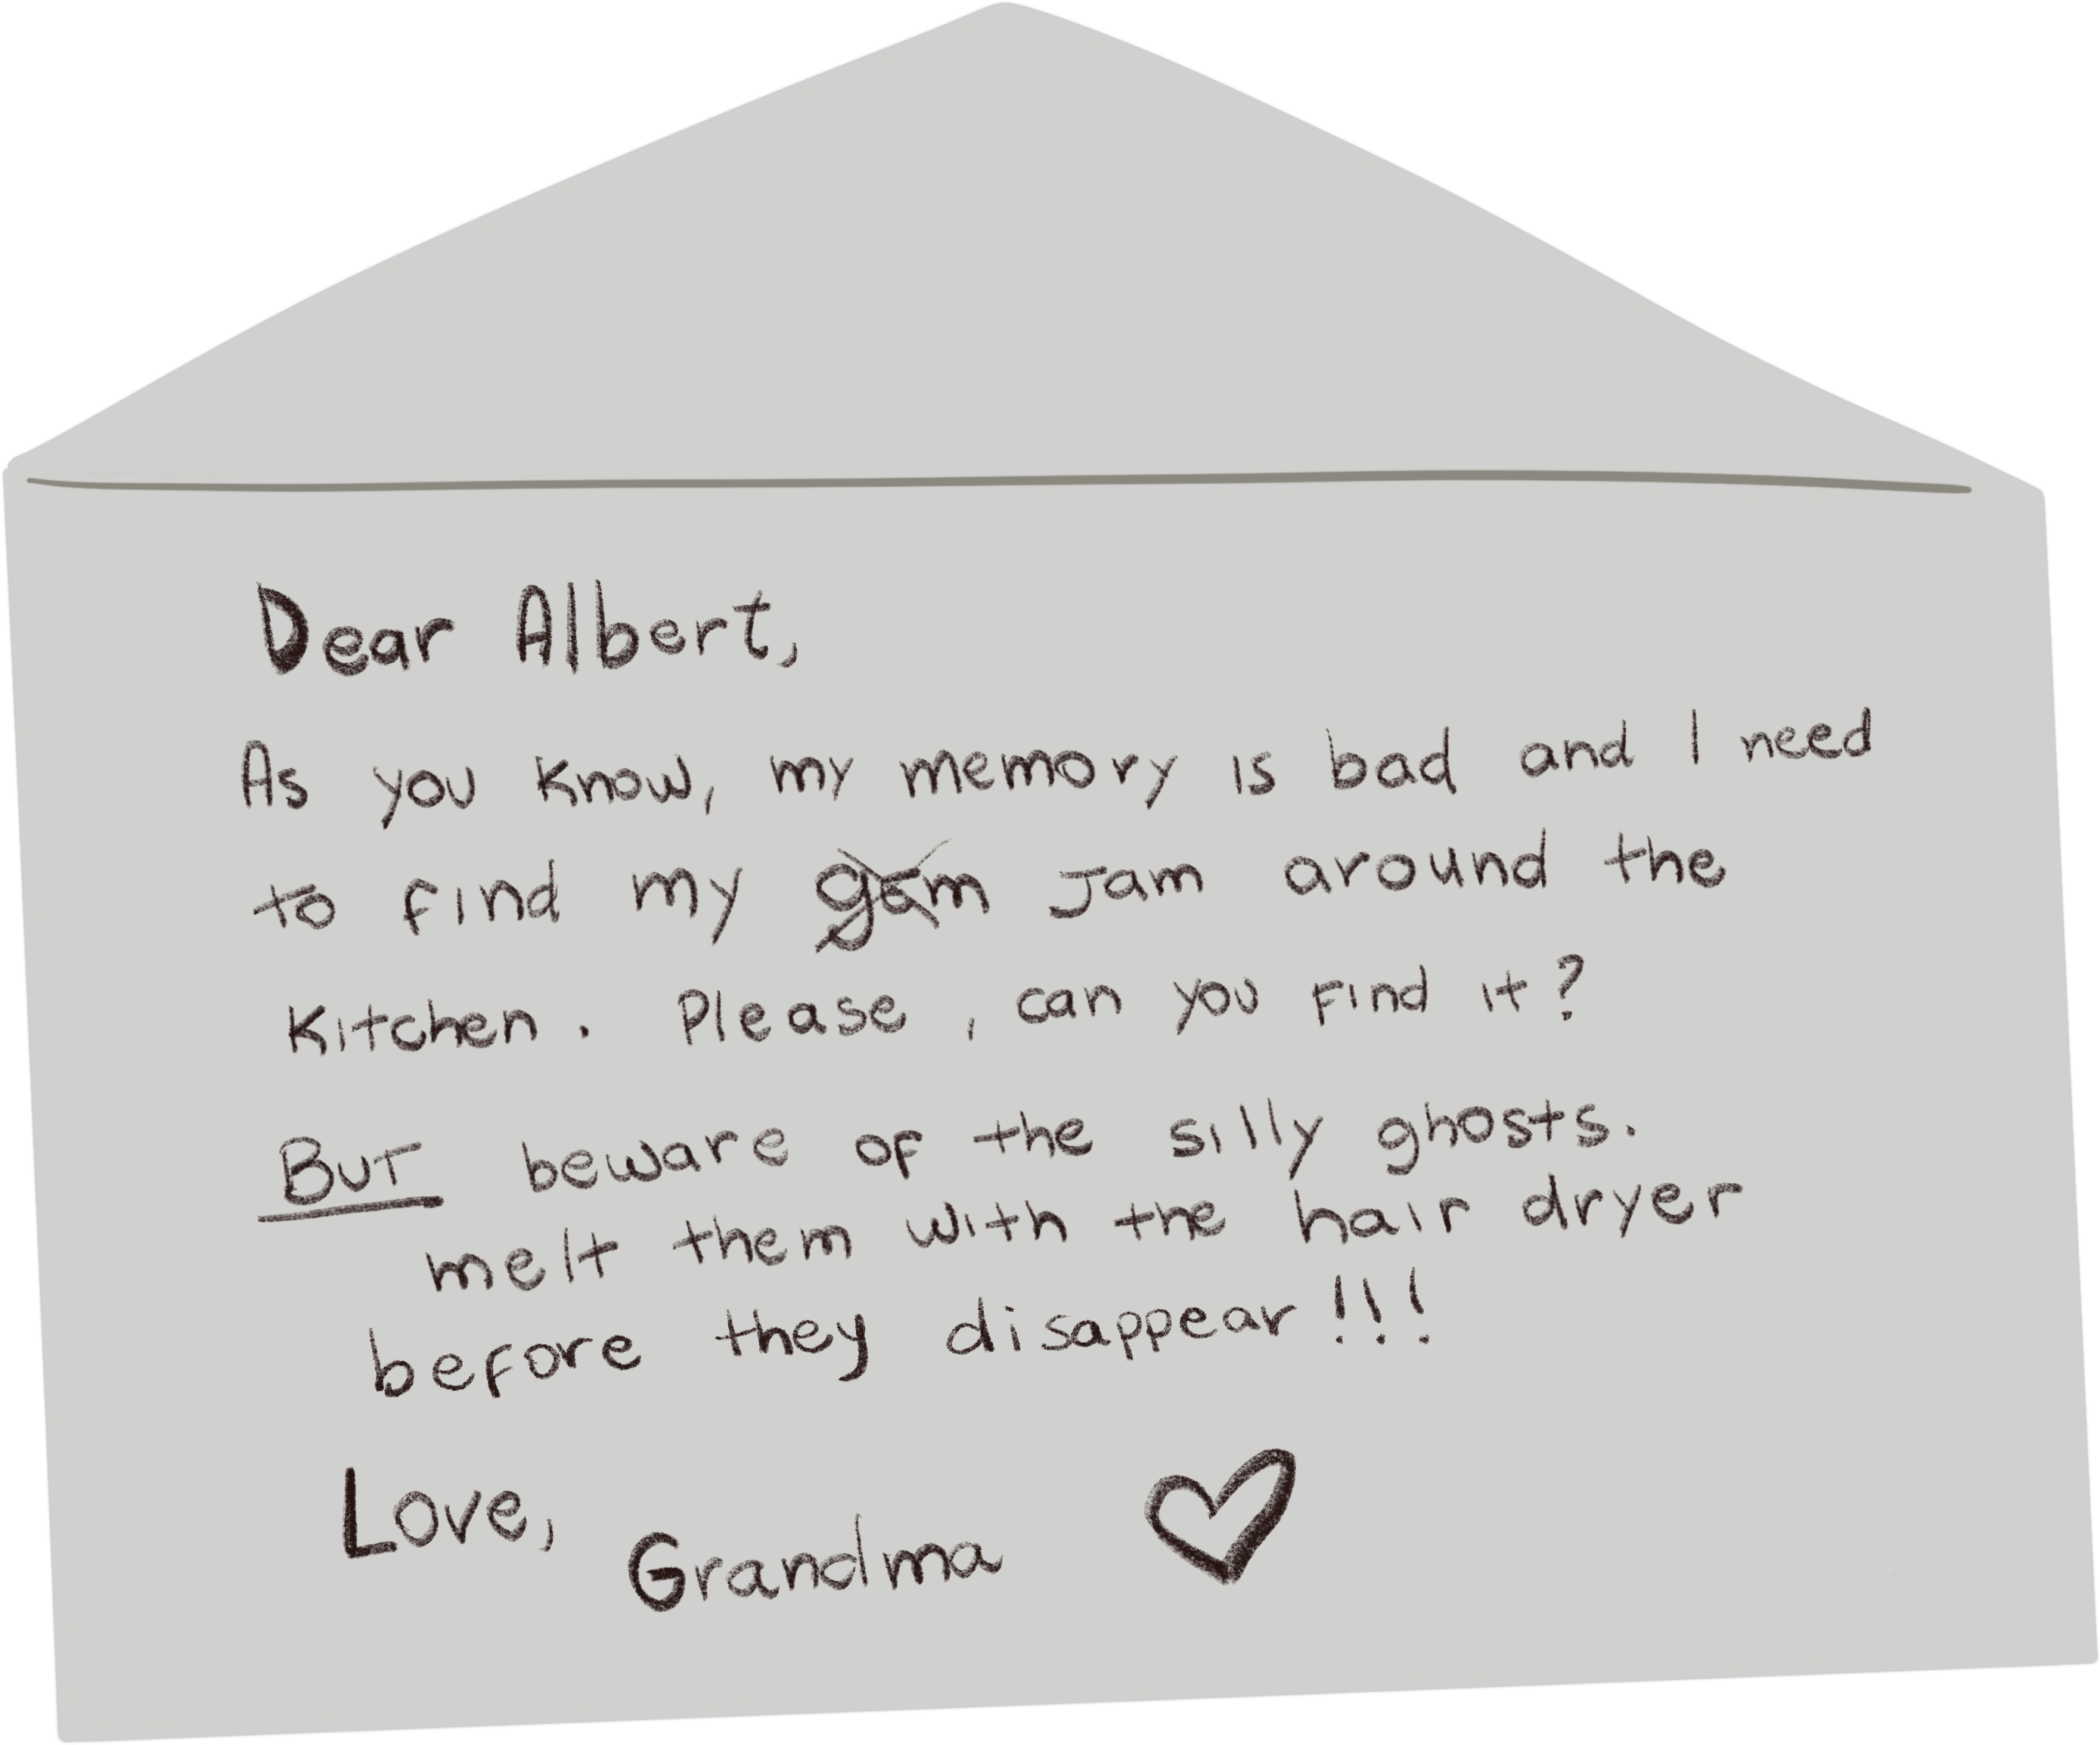 Dear Albert,
As you know, my memory is bad and I need
to find my gam Jam around the
Kitchen. Please, can you find it?
But beware of the silly ghosts.
melt them with the hair dryer
before they disappear!!!
Love,
Grandma